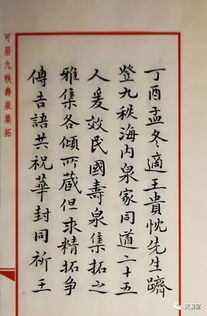 可居九秩壽泉集拓
丁酉孟冬適王貴忱先生躋
登九秩海内泉家同道二十五
人爰效民國壽泉集拓之
雅集各傾所藏但求精拓爭
傳吉語共祝華封同祈王